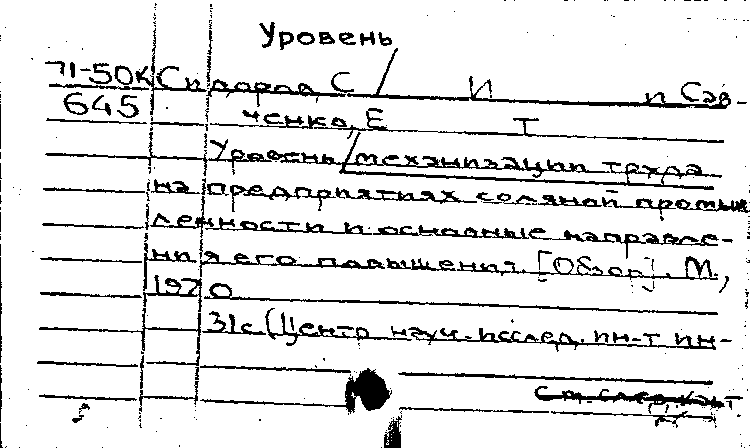 Уровень
71-50К Сидорда, С И и Сав-
645 ченко, Е Т
Уровень механизации труда
на предприятиях соляной промыш
ленности и основные направле-
ния его повышения. [Обзор]. М.,
1970
31с. (Центр науч.-исслед. ин-т ин-
См. след. конт.